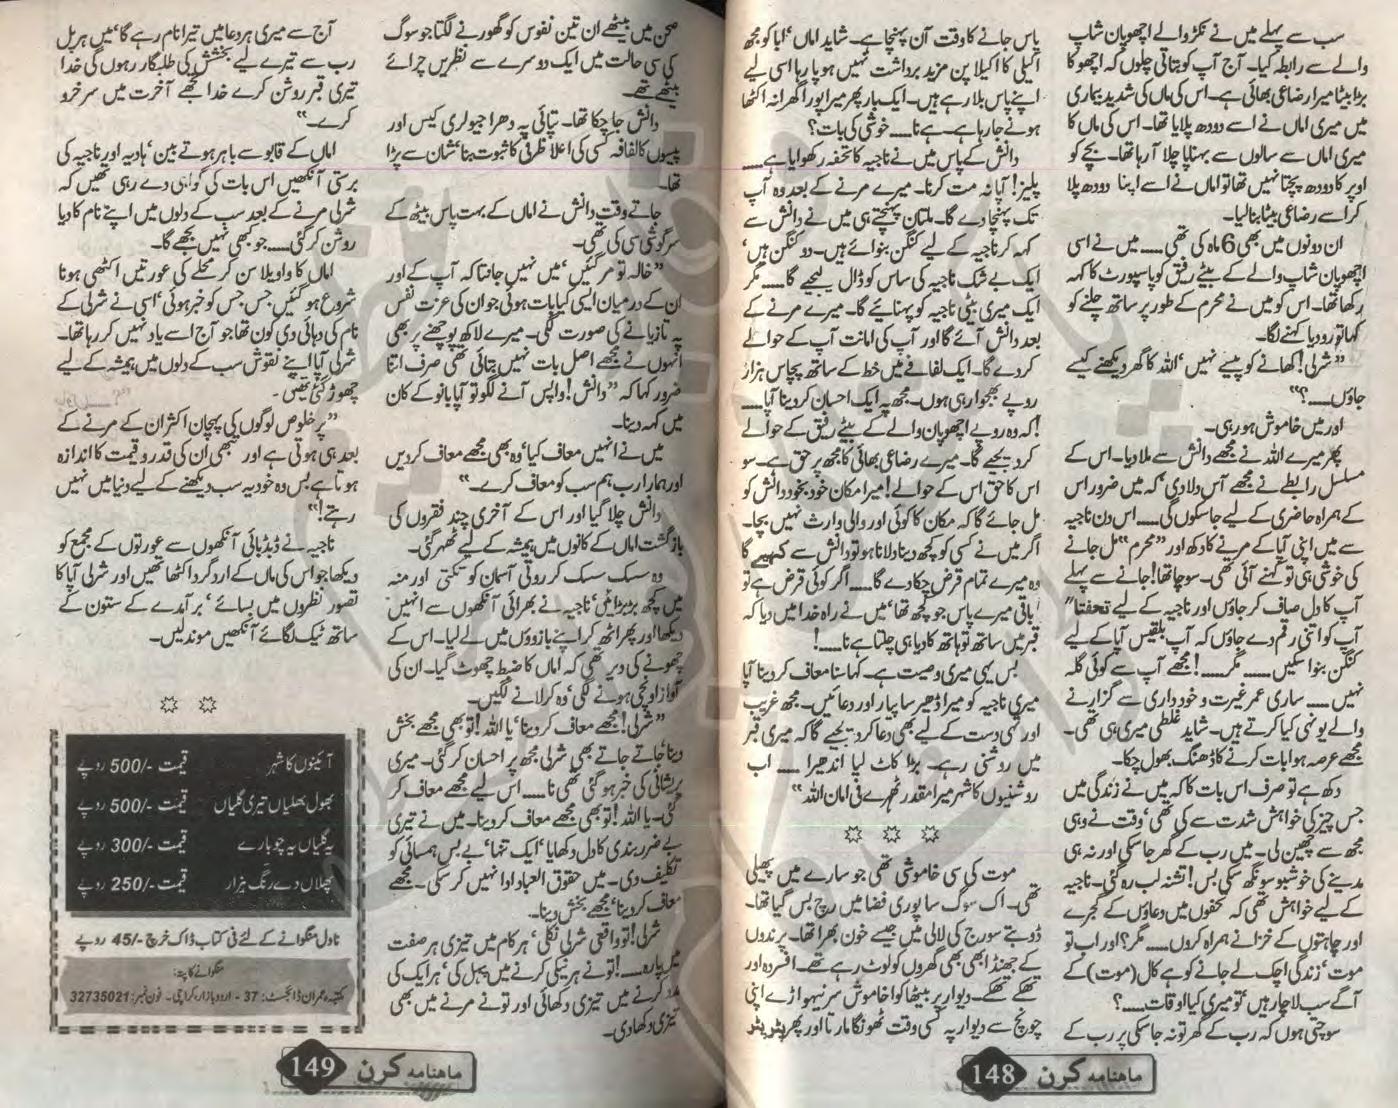 سب سے پہلے میں نے نکڑ والے اچھو پان شاپ
والے سے رابطہ کیا۔ آج آپ کو بتاتی چلوں کہ اچھو کا
بڑا بیٹا میرا رضاعی بھائی ہے۔ اس کی ماں کی شدید بیماری
میں میری اماں نے اسے دودھ پلایا تھا۔ اس کی ماں کا
میری اماں سے سالوں سے بہناپا چلا آ رہا تھا۔ بچے کو
اوپر کا دودھ پچتا نہیں تھا تو اماں نے اسے اپنا دودھ پلا
کر اسے رضاعی بیٹا بنا لیا۔
ان دونوں میں بھی 6 ماہ کی تھی ..... میں نے اسی
اچھو پان شاپ والے کے بیٹے رفیق کو پاسپورٹ کا کہہ
رکھا تھا۔ اس کو میں نے محرم کے طور پر ساتھ چلنے کو
کہا تو رو دیا کہنے لگا۔
”شرلی! کھانے کو پیسے نہیں‘ اللہ کا گھر دیکھنے کیسے
جاؤں.....؟“
اور میں خاموش ہو رہی۔
پھر میرے اللہ نے مجھے دانش سے ملا دیا۔ اس کے
مسلسل رابطے نے مجھے آس دلا دی‘ کہ میں ضرور اس
کے ہمراہ حاضری کے لیے جا سکوں گی ..... اس دن ناجیہ
سے میں اپنی آپا کے مرنے کا دکھ اور ”محرم“ مل جانے
کی خوشی ہی تو کہنے آئی تھی۔ سوچا تھا! جانے سے پہلے
آپ کا دل صاف کر جاؤں اور ناجیہ کے لیے تحفتاً“
آپ کو اتنی رقم دے جاؤں کہ آپ بلقیس آپا کے لیے
کنگن بنوا سکیں ..... مگر.....! مجھے آپ سے کوئی گلہ
نہیں ..... ساری عمر غیرت و خودداری سے گزارنے
والے یونہی کیا کرتے ہیں۔ شاید غلطی میری ہی تھی۔
مجھے عرصہ ہوا بات کرنے کا ڈھنگ بھول چکا۔
دکھ ہے تو صرف اس بات کا کہ میں نے زندگی میں
جس چیز کی خواہش شدت سے کی تھی‘ وقت نے وہی
مجھ سے چھین لی۔ میں رب کے گھر جا سکی اور نہ ہی
مدینے کی خوشبو سونگھ سکی بس! تشنہ لب رہ گئی۔ ناجیہ
کے لیے خواہش تھی کہ تحفوں میں دعاؤں کے گجرے
اور چاہتوں کے خزانے ہمراہ کروں ..... مگر؟ اور اب تو
موت‘ زندگی اچک لے جانے کو ہے کال (موت) کے
آگے سب لاچار ہیں‘ تو میری کیا اوقات .....؟
سوچتی ہوں کہ رب کے گھر تو نہ جا سکی پر رب کے
پاس جانے کا وقت آن پہنچا ہے۔ شاید اماں‘ ابا کو مجھ
اکیلی کا اکیلا پن مزید برداشت نہیں ہو پا رہا اسی لیے
اپنے پاس بلا رہے ہیں۔ ایک بار پھر میرا پورا گھرانہ اکٹھا
ہونے جا رہا ہے۔ ہے نا ..... خوشی کی بات؟
دانش کے پاس میں نے ناجیہ کا تحفہ رکھوایا ہے .....
پلیز! آپا نہ مت کرنا۔ میرے مرنے کے بعد وہ آپ
تک پہنچا دے گا۔ ملتان پہنچتے ہی میں نے دانش سے
کہہ کر ناجیہ کے لیے کنگن بنوائے ہیں۔ دو کنگن ہیں‘
ایک بے شک ناجیہ کی ساس کو ڈال لیجیے گا ..... مگر
ایک میری بیٹی ناجیہ کو پہنائیے گا۔ میرے مرنے کے
بعد دانش آئے گا اور آپ کی امانت آپ کے حوالے
کر دے گا۔ ایک لفافے میں خط کے ساتھ پچاس ہزار
روپے بھجوا رہی ہوں۔ مجھ پہ ایک احسان کر دینا آپا .....
!کہ وہ روپے اچھو پان والے کے بیٹے رفیق کے حوالے
کر دیجیے گا۔ میرے رضاعی بھائی کا مجھ پر حق ہے۔ سو
اس کا حق اس کے حوالے! میرا مکان خود بخود دانش کو
مل جائے گا کہ مکان کا کوئی اور والی وارث نہیں بچا۔
اگر میں نے کسی کو کچھ دینا دلانا ہو تو دانش سے کہیے گا
وہ میرے تمام قرض چکا دے گا ..... اگر کوئی قرض ہے تو
باقی میرے پاس جو کچھ تھا‘ میں نے راہ خدا میں دیا کہ
قبر میں ساتھ تو ہاتھ کا دیا ہی چلتا ہے نا .....!
بس یہی میری وصیت ہے۔ کہا سنا معاف کر دینا آپا
میری ناجیہ کو میرا ڈھیر سا پیار اور دعائیں۔ مجھ غریب
اور تہی دست کے لیے بھی دعا کر دیجیے گا کہ میری قبر
میں روشنی رہے۔ بڑا کاٹ لیا اندھیرا ..... اب
روشنیوں کا شہر میرا مقدر ٹھہرے فی امان اللہ“
موت کی سی خاموشی تھی جو سارے میں پھیلی
تھی۔ اک سوگ سا پوری فضا میں رچ بس گیا تھا۔
ڈوبتے سورج کی لالی میں جیسے خون بھرا تھا۔ پرندوں
کے جھنڈ ابھی بھی گھروں کو لوٹ رہے تھے۔ افسردہ اور
تھکے تھکے۔ دیوار پر بیٹھا کوا خاموش سر نیہواڑے اپنی
چونچ سے دیوار پہ کسی وقت ٹھونگا مارتا اور پھر پٹر پٹر
ماہنامہ کرن 148
صحن میں بیٹھے ان تین نفوس کو گھورنے لگتا جو سوگ
کی سی حالت میں ایک دوسرے سے نظریں چرائے
بیٹھے تھے۔
دانش جا چکا تھا۔ تپائی پہ دھرا جیولری کیس اور
پیسوں کا لفافہ کسی کی اعلا ظرفی کا ثبوت بنا‘ شان سے پڑا
تھا۔
جاتے وقت دانش نے اماں کے بہت پاس بیٹھ کے
سرگوشی سی کی تھی۔
”خالہ تو مر گئیں‘ میں نہیں جانتا کہ آپ کے اور
ان کے درمیان ایسی کیا بات ہوئی جو ان کی عزت نفس
پہ تازیانے کی صورت لگی۔ میرے لاکھ پوچھنے پر بھی
انہوں نے مجھے اصل بات نہیں بتائی تھی صرف اتنا
ضرور کہا کہ ”دانش! واپس آنے لگو تو آپا بانو کے کان
میں کہہ دینا۔
میں نے انہیں معاف کیا‘ وہ بھی مجھے معاف کر دیں
اور ہمارا رب ہم سب کو معاف کرے۔“
دانش چلا گیا اور اس کے آخری چند فقروں کی
بازگشت اماں کے کانوں میں ہمیشہ کے لیے ٹھہر گئی۔
وہ سسک سسک کر روتی آسمان کو تکتی اور منہ
میں کچھ بڑبڑاتیں‘ ناجیہ نے بھرائی آنکھوں سے انہیں
دیکھا اور پھر اٹھ کر اپنے بازوؤں میں لے لیا۔ اس کے
چھونے کی دیر تھی کہ اماں کا ضبط چھوٹ گیا۔ ان کی
آواز اونچی ہونے لگی‘ وہ کرلانے لگیں۔
”شرلی! مجھے معاف کر دینا‘ یا اللہ! تو بھی مجھے بخش
دینا‘ جاتے جاتے بھی شرلی مجھ پر احسان کر گئی۔ میری
پریشانی کی خبر ہو گئی تھی نا ..... اس لیے مجھے معاف کر
گئی۔ یا اللہ! تو بھی مجھے معاف کر دینا۔ میں نے تیری
بے ضرر بندی کا دل دکھایا‘ ایک تنہا‘ بے بس ہمسائی کو
تکلیف دی۔ میں حقوق العباد ادا نہیں کر سکی۔ مجھے
معاف کر دینا‘ مجھے بخش دینا۔
شرلی! تو واقعی شرلی نکلی‘ ہر کام میں تیزی ہر صفت
میں پارہ .....! تو نے ہر نیکی کرنے میں پہل کی‘ ہر ایک کی
مدد کرنے میں تیزی دکھائی اور تو نے مرنے میں بھی
تیزی دکھا دی۔
آج سے میری ہر دعا میں تیرا نام رہے گا‘ میں ہر پل
رب سے تیرے لیے بخشش کی طلبگار رہوں گی خدا
تیری قبر روشن کرے خدا تجھے آخرت میں سرخرو
کرے۔“
اماں کے قابو سے باہر ہوتے بین‘ ہادیہ اور ناجیہ کی
برستی آنکھیں اس بات کی گواہی دے رہی تھیں کہ
شرلی مرنے کے بعد سب کے دلوں میں اپنے نام کا دیا
روشن کر گئی ..... جو کبھی نہیں بجھے گا۔
اماں کا واویلا سن کر محلے کی عورتیں اکٹھی ہونا
شروع ہو گئیں جس جس کو خبر ہوئی‘ اسی نے شرلی کے
نام کی دہائی دی کون تھا جو آج اسے یاد نہیں کر رہا تھا۔
شرلی آپا اپنے نقوش سب کے دلوں میں ہمیشہ کے لیے
چھوڑ گئی تھیں۔
”پرخلوص لوگوں کی پہچان اکثر ان کے مرنے کے
بعد ہی ہوتی ہے اور تبھی ان کی قدر و قیمت کا اندازہ
ہوتا ہے بس وہ خود یہ سب دیکھنے کے لیے دنیا میں نہیں
رہتے!“
ناجیہ نے ڈبڈبائی آنکھوں سے عورتوں کے مجمع کو
دیکھا جو اس کی ماں کے ارد گرد اکٹھا تھیں اور شرلی آپا کا
تصور نظروں میں بسائے‘ برآمدے کے ستون کے
ساتھ ٹیک لگائے آنکھیں موند لیں۔
آئینوں کا شہر قیمت -/500 روپے
بھول بھلیاں تیری گلیاں قیمت -/500 روپے
یہ گلیاں یہ چوبارے قیمت -/300 روپے
پھلاں دے رنگ ہزار قیمت -/250 روپے
ناول منگوانے کے لئے فی کتاب ڈاک خرچ -/45 روپے
منگوانے کا پتہ:
مکتبہ عمران ڈائجسٹ: 37 - اردو بازار، کراچی۔ فون نمبر: 32735021
ماہنامہ کرن 149